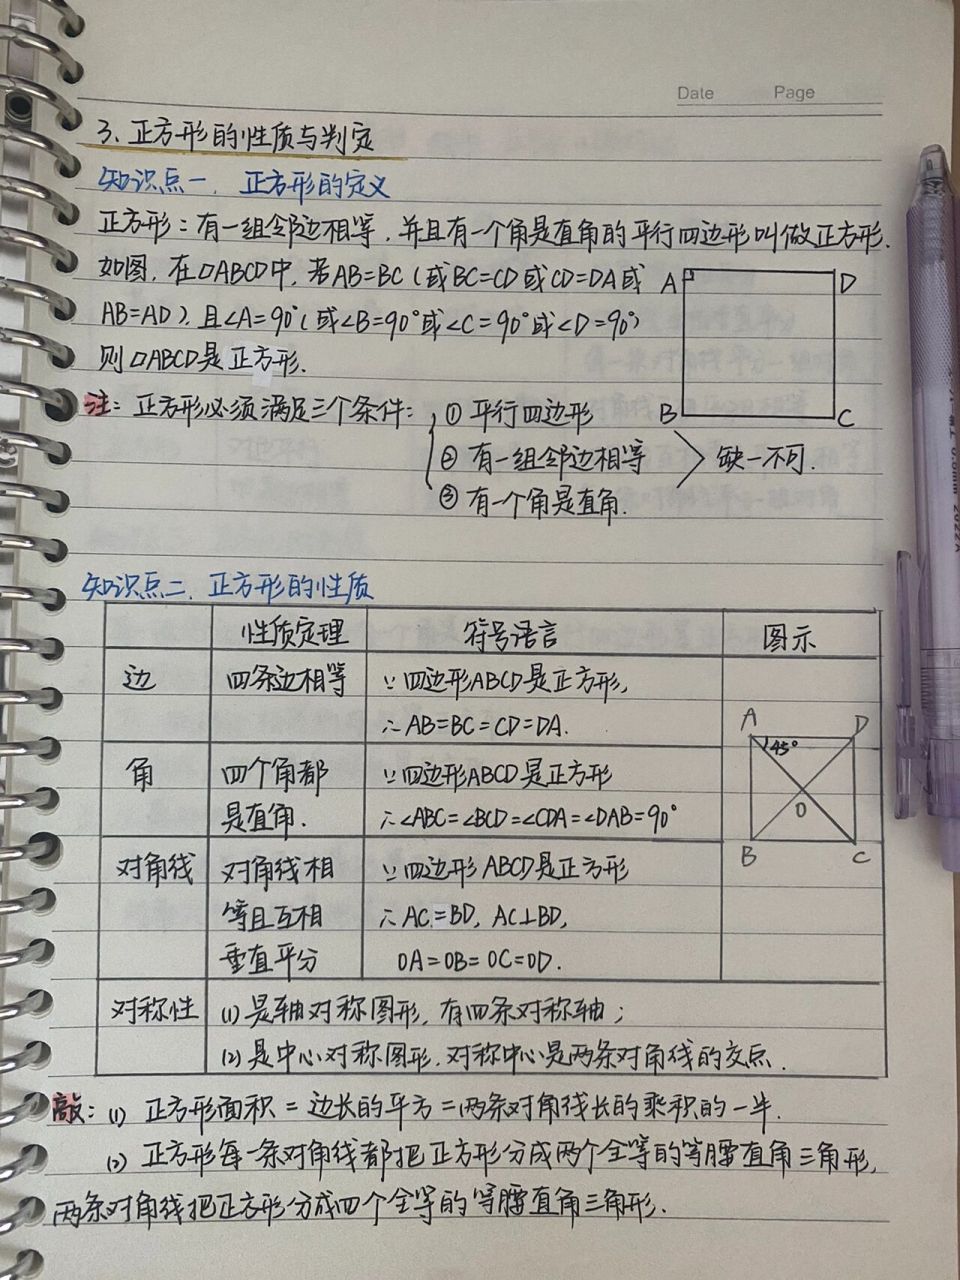 Date Page
3、正方形的性质与判定
知识点一、正方形的定义
正方形：有一组邻边相等，并且有一个角是直角的平行四边形叫做正方形.
如图，在▱ABCD中，若AB=BC（或BC=CD或CD=DA或
AB=AD），且∠A=90°（或∠B=90°或∠C=90°或∠D=90°）
则▱ABCD是正方形.
A D
B C
注：正方形必须满足三个条件：① 平行四边形
② 有一组邻边相等
③ 有一个角是直角.
缺一不可.
知识点二、正方形的性质
性质定理 符号语言 图示
边 四条边相等 ∵四边形ABCD是正方形，
∴AB=BC=CD=DA.
角 四个角都 ∵四边形ABCD是正方形
是直角. ∴∠ABC=∠BCD=∠CDA=∠DAB=90°
A D
45°
O
B C
对角线 对角线相 ∵四边形ABCD是正方形
等且互相 ∴AC=BD，AC⊥BD，
垂直平分 OA=OB=OC=OD.
对称性 (1) 是轴对称图形，有四条对称轴；
(2) 是中心对称图形，对称中心是两条对角线的交点.
敲：(1) 正方形面积=边长的平方=两条对角线长的乘积的一半.
(2) 正方形每一条对角线都把正方形分成两个全等的等腰直角三角形，
两条对角线把正方形分成四个全等的等腰直角三角形.